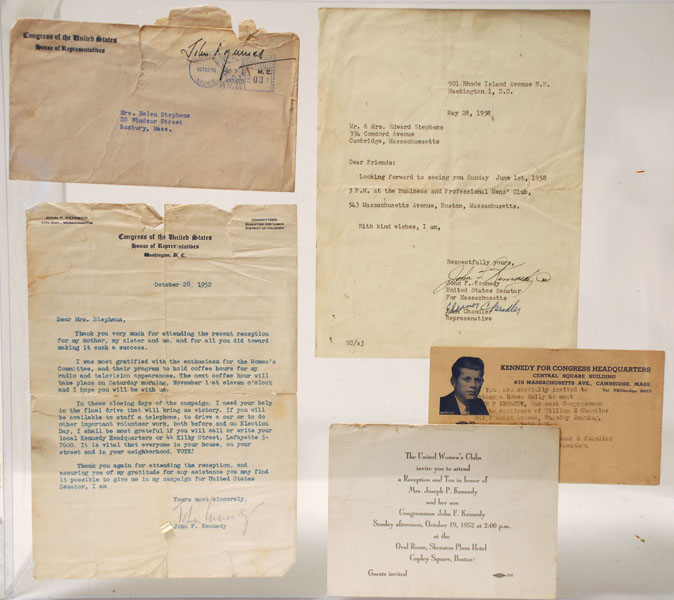 Congress of the United States
House of Representatives
John F. Kennedy
Mrs. Helen Stephens
20 Windsor Street
Roxbury, Mass.
JOHN F. KENNEDY
COMMITTEES:
EDUCATION AND LABOR
DISTRICT OF COLUMBIA
Congress of the United States
House of Representatives
Washington, D. C.
October 28, 1952
Dear Mrs. Stephens,
Thank you very much for attending the recent reception
for my mother, my sister and me, and for all you did toward
making it such a success.
I was most gratified with the enthusiasm for the Women's
Committee, and their program to hold coffee hours for my
radio and television appearances. The next coffee hour will
take place on Saturday morning, November 1 at eleven o'clock
and I hope you will be with us.
In these closing days of the campaign, I need your help
in the final drive that will bring us victory. If you will
be available to staff a telephone, to drive a car or to do
other important volunteer work, both before and on Election
Day, I shall be most grateful if you will call or write your
local Kennedy Headquarters or 44 Kilby Street, Lafayette 3-
7600. It is vital that everyone in your house, on your
street and in your neighborhood, VOTE!
Thank you again for attending the reception, and
assuring you of my gratitude for any assistance you may find
it possible to give me in my campaign for United States
Senator, I am
Yours most sincerely,
John F. Kennedy
901 Rhode Island Avenue N.W.
Washington 1, D.C.
May 28, 1958
Mr. & Mrs. Edward Stephens
334 Concord Avenue
Cambridge, Massachusetts
Dear Friends:
Looking forward to seeing you Sunday June 1st, 1958
3 P.M. at the Business and Professional Mens' Club,
543 Massachusetts Avenue, Boston, Massachusetts.
With kind wishes, I am,
Respectfully yours,
John F. Kennedy
John F. Kennedy
United States Senator
For Massachusetts
Eleanor C Chandler
Chandler
Represenative
KENNEDY FOR CONGRESS HEADQUARTERS
CENTRAL SQUARE BUILDING
678 MASSACHUSETTS AVE., CAMBRIDGE, MASS.
You are cordially invited to
House Rally to meet
KENNEDY, our next Congressman
residence of William S Chandler
Avenue, Thursday Evening,
The United Women's Clubs
invite you to attend
a Reception and Tea in honor of
Mrs. Joseph P. Kennedy
and her son
Congressman John F. Kennedy
Sunday afternoon, October 19, 1952 at 2:00 p.m.
at the
Oval Room, Sheraton Plaza Hotel
Copley Square, Boston
Guests invited